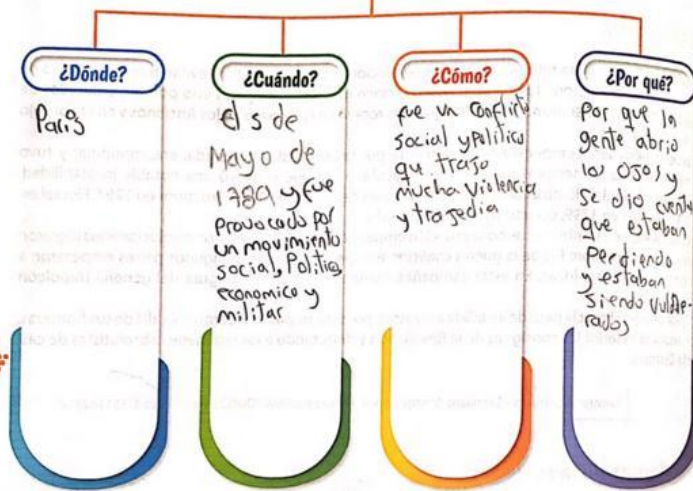 ¿Dónde?
París
¿Cuándo?
El 5 de
Mayo de
1789 y fue
Provocado por
un movimiento
social, Politico,
economico y
militar
¿Cómo?
fue un Conflicto
social y Político
que trajo
mucha violencia
y tragedia
¿Por qué?
Por que la
gente abrio
los ojos y
se dio cuenta
que estaban
Perdiendo
y estaban
siendo vulne-
rados